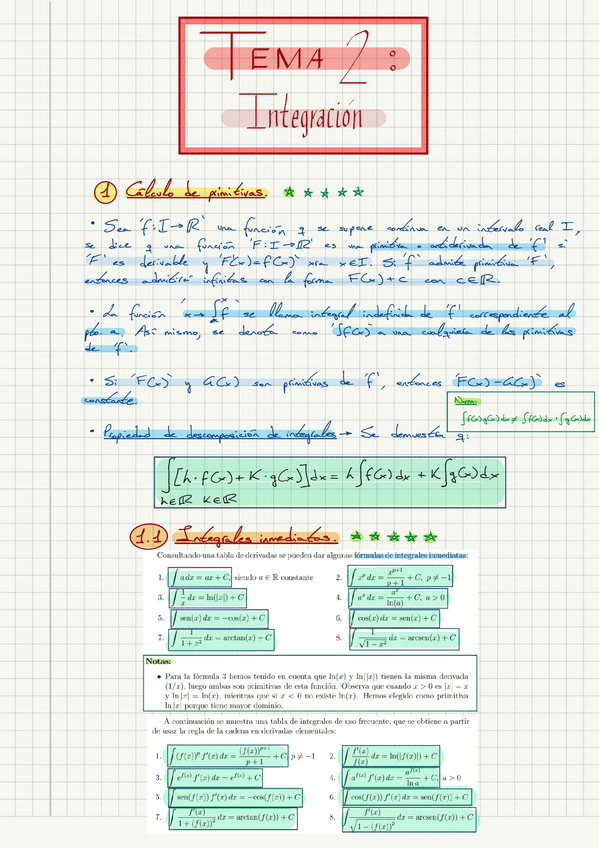 TEMA 2:
Integración
1 Cálculo de primitivas.
• Sea 'f: I→ℝ' una función q se supone continua en un intervalo real I,
se dice q una función 'F: I→ℝ' es una primitiva o antiderivada de 'f' si
'F' es derivable y 'F'(x)=f(x)' xra x∈I. Si 'f' admite primitiva 'F',
entonces admitirá infinitas con la forma F(x)+c con c∈ℝ.
• La función 'x→∫ₐˣ f' se llama integral indefinida de 'f' correspondiente al
pto. a. Así mismo, se denota como '∫f(x)' a una cualquiera de las primitivas
de 'f'.
• Si 'F(x)' y G(x) son primitivas de 'f', entonces 'F(x)-G(x)' es
constante.
Nota:
∫f(x)g(x)dx ≠ ∫f(x)dx · ∫g(x)dx
• Propiedad de descomposición de integrales → Se demuestra q:
∫[h·f(x)+K·g(x)]dx = h∫f(x)dx + K∫g(x)dx
h∈ℝ K∈ℝ
1.1 Integrales inmediatas.
Consultando una tabla de derivadas se pueden dar algunas fórmulas de integrales inmediatas:
1. ∫ a dx = ax + C, siendo a ∈ ℝ constante
2. ∫ x^p dx = x^(p+1)/(p+1) + C, p ≠ −1
3. ∫ 1/x dx = ln(|x|) + C
4. ∫ a^x dx = a^x/ln(a) + C, a > 0
5. ∫ sen(x) dx = −cos(x) + C
6. ∫ cos(x) dx = sen(x) + C
7. ∫ 1/(1 + x²) dx = arctan(x) + C
8. ∫ 1/√(1 − x²) dx = arcsen(x) + C
Notas:
• Para la fórmula 3 hemos tenido en cuenta que ln(x) y ln(|x|) tienen la misma derivada
(1/x), luego ambas son primitivas de esta función. Observa que cuando x > 0 es |x| = x
y ln |x| = ln(x), mientras que si x < 0 no existe ln(x). Hemos elegido como primitiva
ln |x| porque tiene mayor dominio.
A continuación se muestra una tabla de integrales de uso frecuente, que se obtiene a partir
de usar la regla de la cadena en derivadas elementales:
1. ∫ (f(x))^p f'(x) dx = (f(x))^(p+1)/(p+1) + C, p ≠ −1
2. ∫ f'(x)/f(x) dx = ln(|f(x)|) + C
3. ∫ e^f(x) f'(x) dx = e^f(x) + C
4. ∫ a^f(x) f'(x) dx = a^f(x)/ln a + C, a > 0
5. ∫ sen(f(x)) f'(x) dx = −cos(f(x)) + C
6. ∫ cos(f(x)) f'(x) dx = sen(f(x)) + C
7. ∫ f'(x)/(1 + (f(x))²) dx = arctan(f(x)) + C
8. ∫ f'(x)/√(1 − (f(x))²) dx = arcsen(f(x)) + C